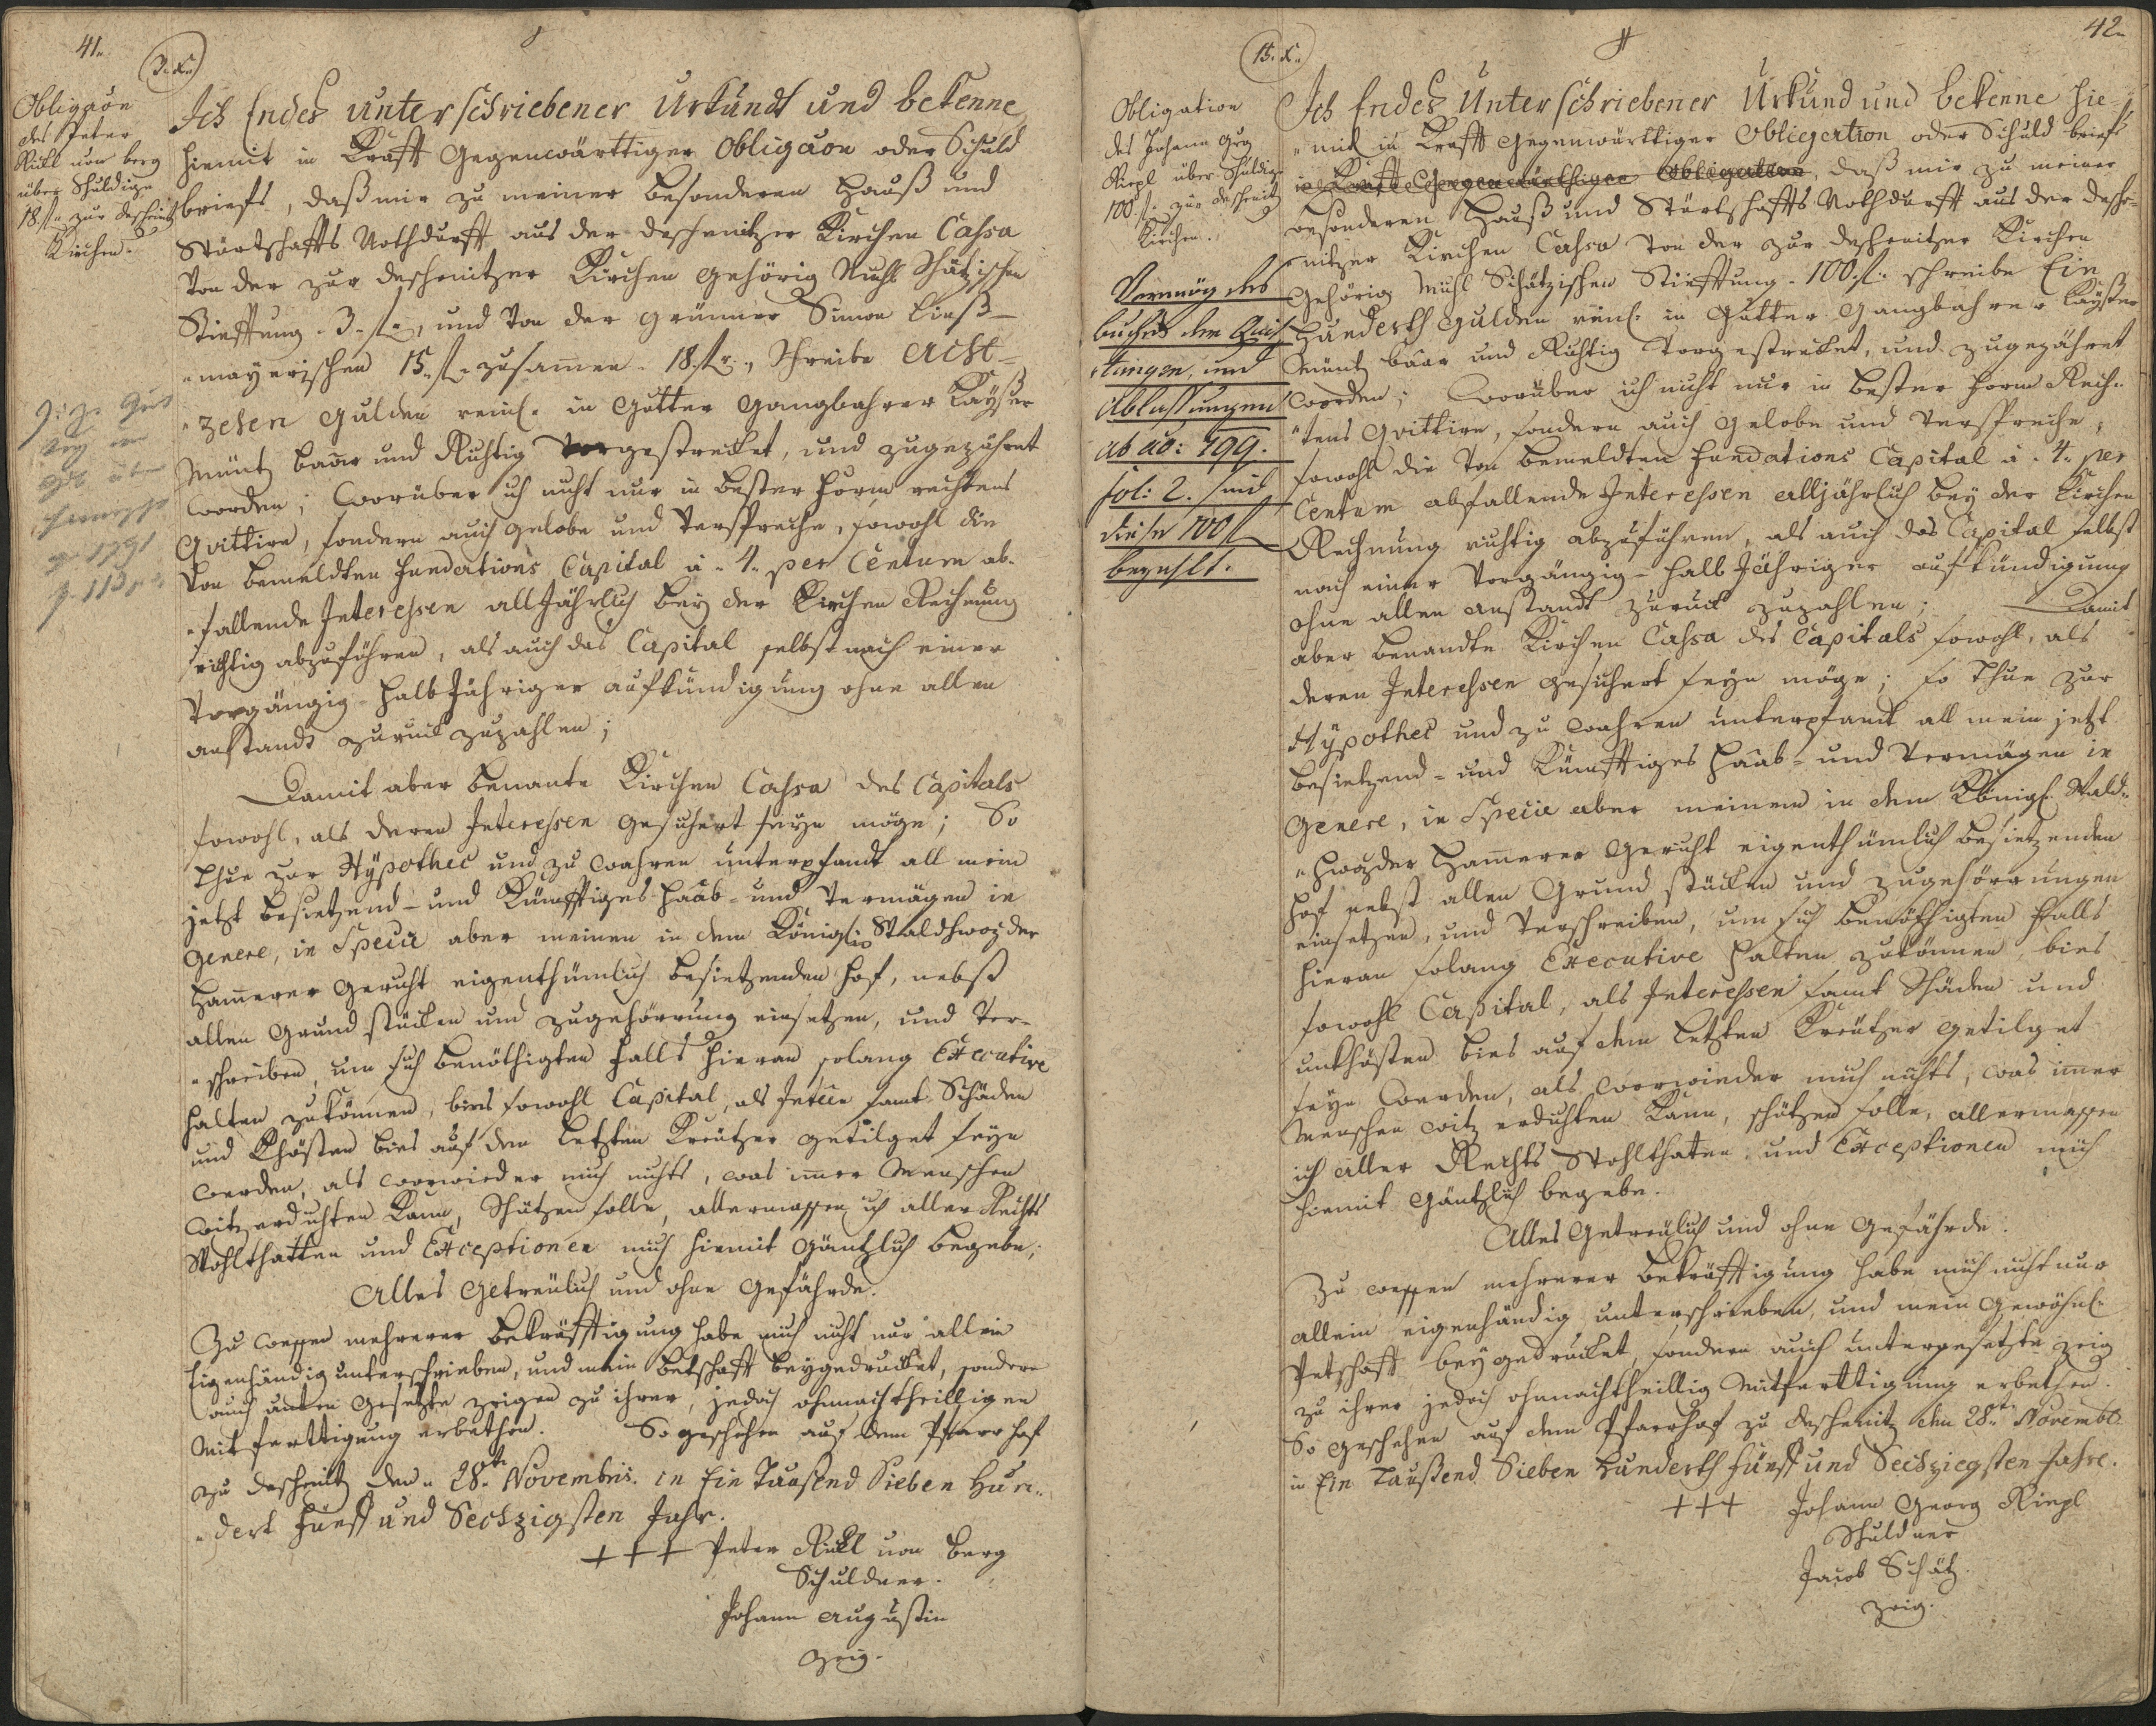 41.
3. x.
Obligaõn
des Peter
Rükl von berg
über Schuldige
18. f. zur descheniz
Kirchen.
Ich Endes unterschriebener Urkundt und bekenne
hiemit in Krafft Gegenwärttiger Obligaõn oder Schuld
briefs, daß mir zu meiner besonderen Hauß und
Würtschaffts Nothdurfft aus der deschenitzer Kirchen Cahsa
Von der zur deschenitzer Kirchen gehörig Muhl Schätzischen
Stiefftung 3. f., und Von der grünner Simon Linß-
mayerischen 15. f. zusamen. 18. f., Schreibe Acht-
zehen Gulden reinl. in Gutter Gangbahrer Kayßer
Müntz baar und Richtig Vorgestrecket, und zugezählet
worden; Worüber ich nicht nur in bester Form rechtens
Qvittire, sondern auch gelobe und Verspreche, sowohl die
Von bemeldten Fundations Capital à 4. per Centum ab-
fallende Interehsen all Jährlich bey der Kirchen Rechnung
richtig abzuführen, als auch das Capital selbst nach einer
Vorgängig-halb Jähriger aufkündigung ohne allen
anstandt zuruck zuzahlen;
Damit aber benante Kirchen Cahsa des Capitals
sowohl, als deren Interehsen gesichert seyn möge; So
thue zur Hypothec und zu wahren unterpfandt all mein
jetzt besietzend- und Künfftiges Haab- und Vermögen in
Genere, in Specie aber meinen in dem Königl. Waldhwozder
Hamerer gericht eigenthümlich besietzenden Hof, nebst
allen Grund stücken und zugehörrung einsetzen, und Ver-
schreiben, um sich benöthigten Falls hieran solang Executive
halten zukönnen, bies sowohl Capital, als Intere samt Schäden
und Khösten bies auf den letzten Kreutzer getilget seyn
werden, als worwieder mich nichts, was imer Menschen
Witz erdichten kann, Schützen solle, allermassen ich aller Rechts
Wohlthatten und Exceptionen mich hiemit gäntzlich begebe;
Alles getreulich und ohne Gefährde.
Zu wessen mehrerer bekräfftigung habe mich nicht nur allein
Eigenhändig unterschrieben, und mein Betschafft beygedrucket, sondern
auch unten Gesetzte zeigen zu ihrer, jedoch ohnnachtheilligen
Mitferttigung erbethen. So geschehen auf dem Pfarr hof
zu deschenitz den 28.t Novembris. in Ein Taußend Sieben Hun-
dert fünff und Sechzigsten Jahr.
+++ Peter Rückl von berg
Schuldner.
Johann Augustin
zeig.
42.
15. x.
Obligation
des Johann Grg
Riepl über Schuldige
100 f. zur deschenitz
Kirchen.
Vermög des
buches der Quit
tungen, und
Ablassungen
ab ao: 799.
fol: 2. sind
diese 100 f
bezahlt.
Ich Endes Unterschriebener Urkund und bekenne hie-
mit in Krafft gegenwärttiger Obligation oder Schuld briefs
in Krafft Gegenwärthiger Obligation, daß mir zu meiner
besonderen Hauß und Würtschaffts Nothdurfft aus der desche-
nitzer Kirchen Cahsa Von der zur deschenitzer Kirchen
Gehörig Mühl Schätzischen Stiefftung. 100. f. schreibe Ein
Hunderth Gulden reinl. in Gutter Gangbahrer Kayßer
Müntz baar und Richtig Vorgestrecket, und zugezählet
worden; Worüber ich nicht nur in bester Form Rech-
tens Qvittire, sondern auch gelobe und Verspreche,
sowohl die Von bemeldten Fundations Capital à 4. per
Centum abfallende Interehsen alljährlich bey der Kirchen
Rechnung richtig abzuführen, als auch das Capital selbst
nach einer Vorgängig-halb Jähriger aufkündigung
ohne allen anstandt zuruck zuzahlen; Damit
aber benandte Kirchen Cahsa des Capitals sowohl, als
deren Interehsen gesichert seyn möge; so thue zur
Hypothec und zu wahren unterpfandt all mein jetzt
besietzend- und Künfftiges Haab- und Vermägen in
Genere, in Specie aber meinem in dem Königl. Wald-
hwozder Hamerer gericht eigenthümlich besietzenden
Hof nebst allen Grund stücken und zugehörrungen
einsetzen, und Verschreiben, um sich benöthigten Falls
hieran solang Executive halten zukönnen, bies
sowohl Capital, als Interehsen samt Schäden und
unkhösten bies auf den letzten Kreützer getilget
seyn werden, als worwieder mich nichts, was imer
Menschen Witz erdichten kann, schützen solle, allermassen
ich aller Rechts Wohlthaten und Exceptionen mich
hiemit gäntzlich begebe.
Alles Getreulich und ohne Gefährde.
Zu wessen mehrerer bekräfftigung habe mich nicht nur
allein eigenhändig unterschrieben, und mein Gewöhnl.
Petschafft beygedrucket, sondern auch untergesetzte zeig
zu ihrer jedoch ohnnachtheillig Mitferttigung erbethen.
So geschehen auf dem Pfarrhof zu deschenitz den 28. Novembr.
in Ein Taußend Sieben Hunderth fünff und Sechziegsten Jahre.
+++ Johann Georg Riepl
Schuldner
Jacob Schätz.
zeig.